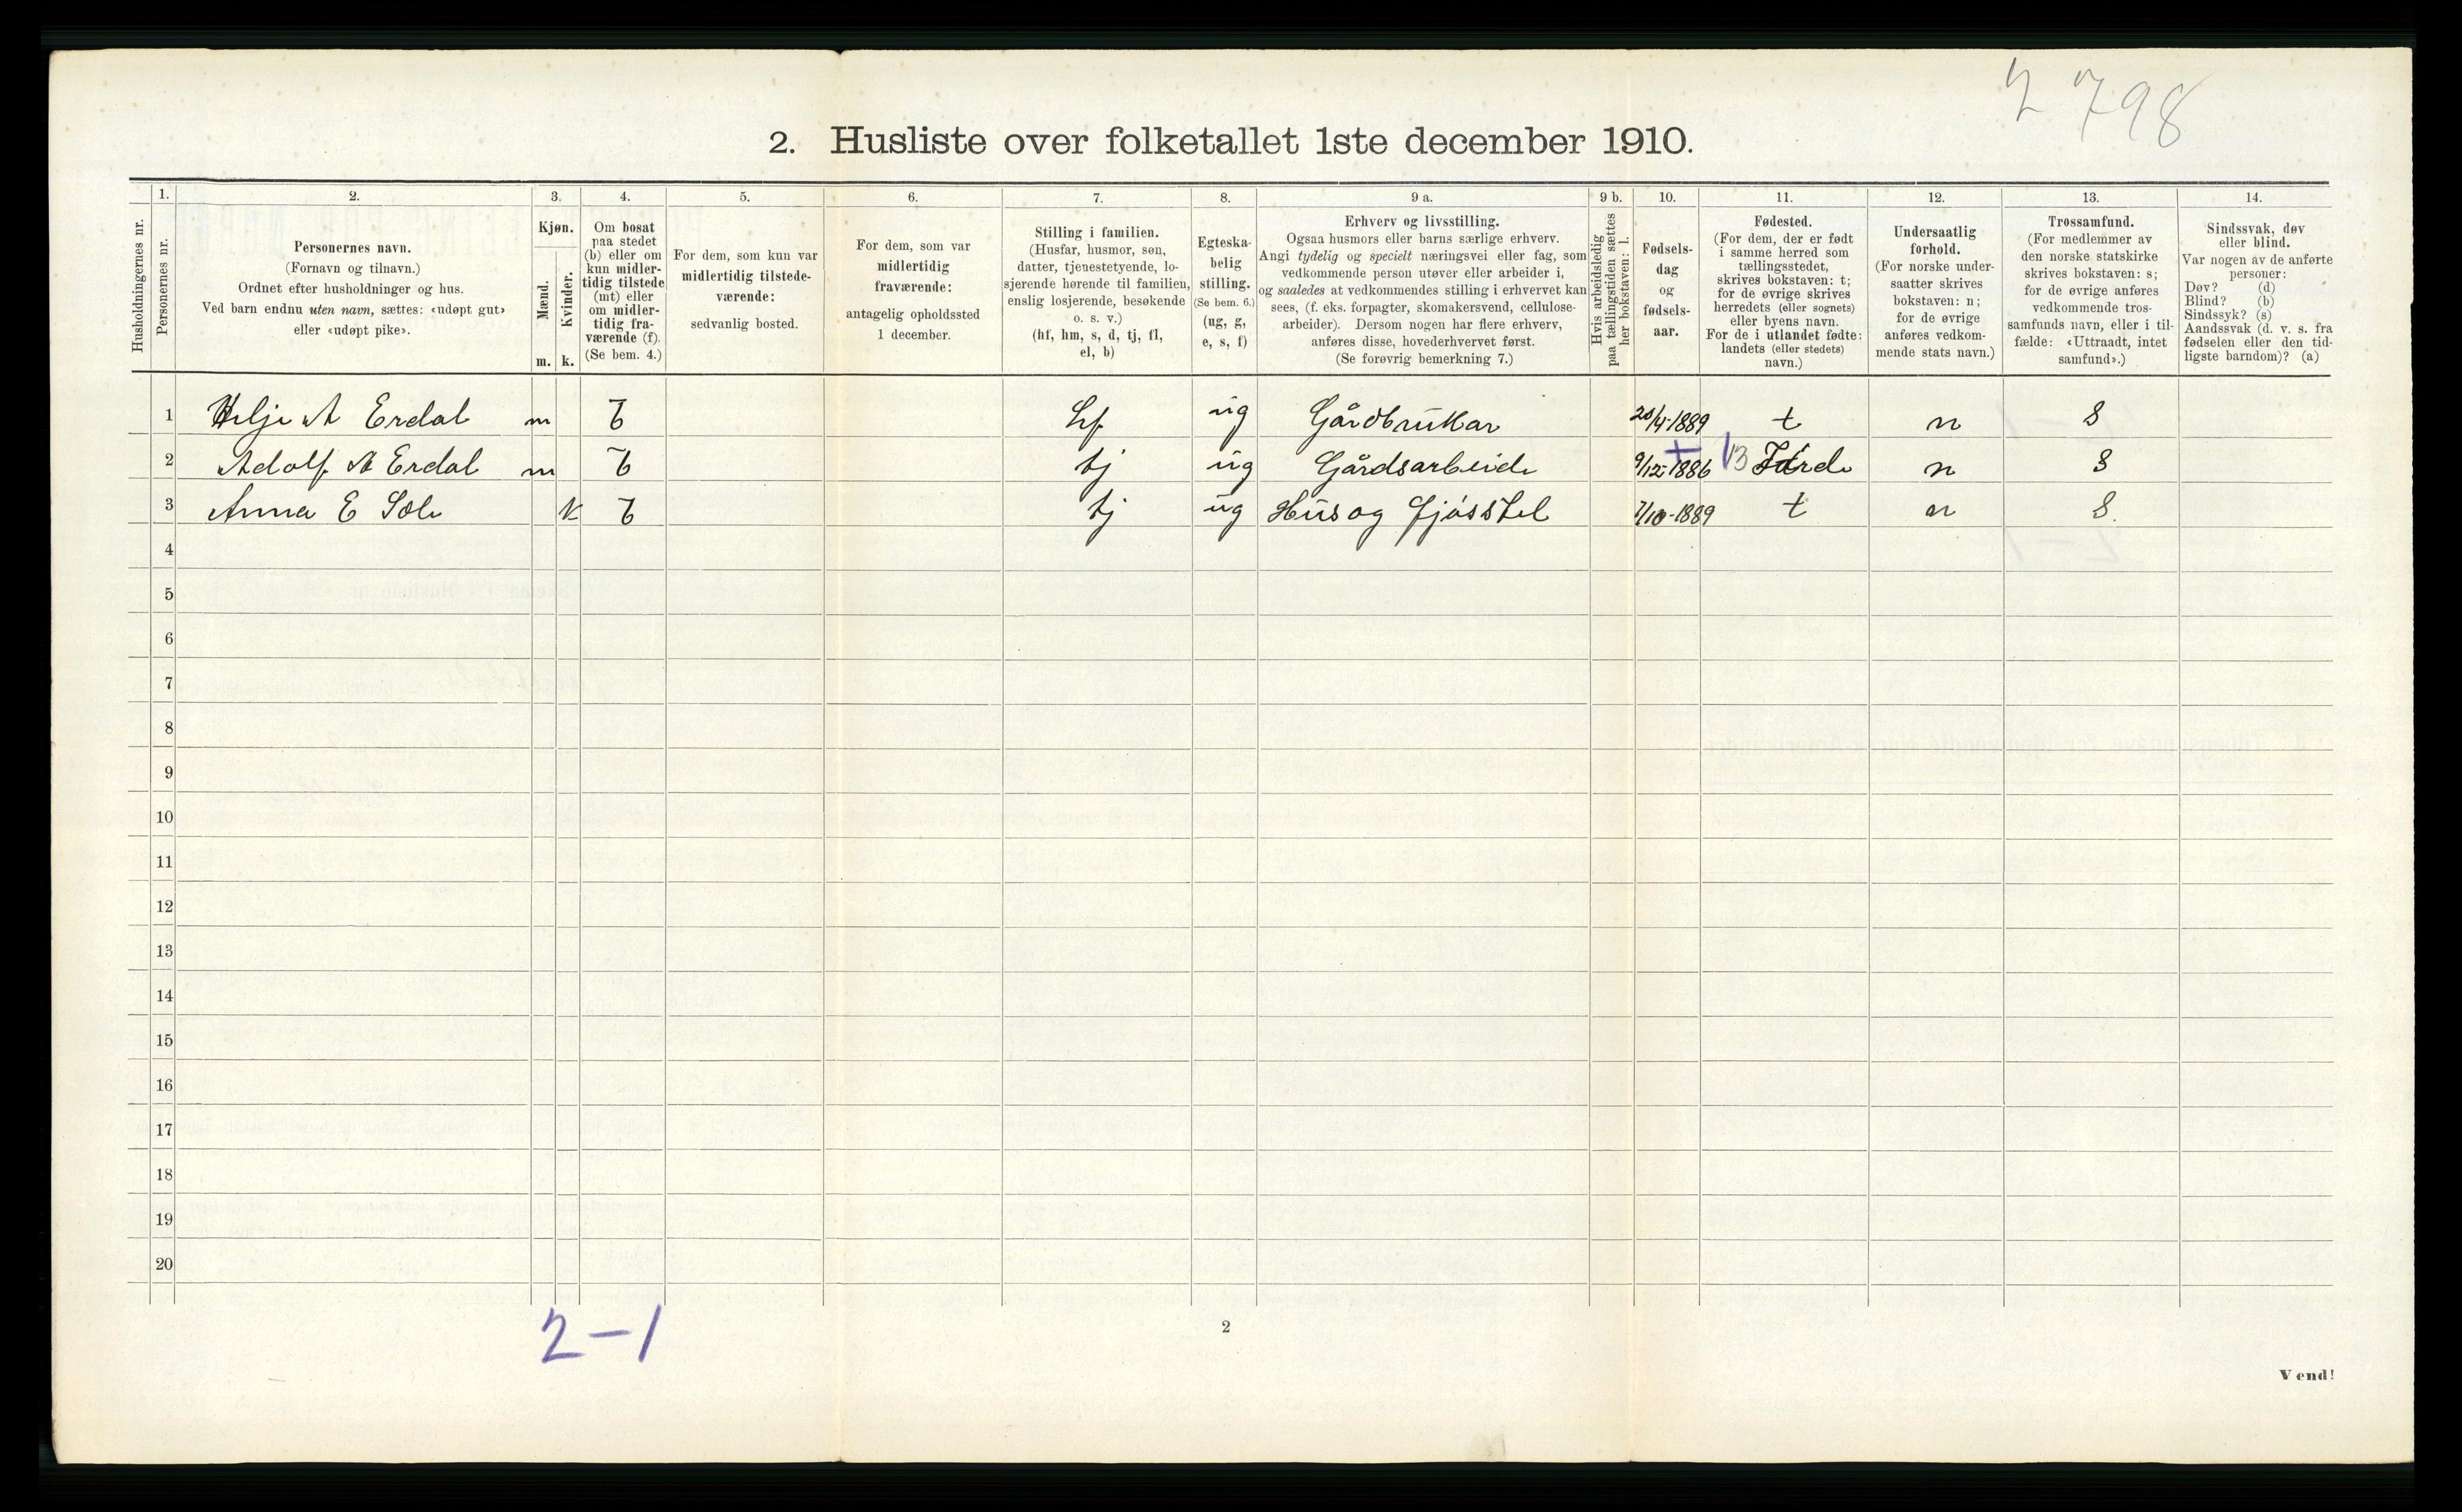 2 798
2. Husliste over folketallet 1ste december 1910.
Husholdningernes nr.
1.
Personernes nr.
2.
Personernes navn.
(Fornavn og tilnavn.)
Ordnet efter husholdninger og hus.
Ved barn endnu uten navn, sættes: «udøpt gut»
eller «udøpt pike».
3.
Kjøn.
Mænd.
Kvinder.
m. k.
4.
Om bosat
paa stedet
(b) eller om
kun midler-
tidig tilstede
(mt) eller
om midler-
tidig fra-
værende (f).
(Se bem. 4.)
5.
For dem, som kun var
midlertidig tilstede-
værende:
sedvanlig bosted.
6.
For dem, som var
midlertidig
fraværende:
antagelig opholdssted
1 december.
7.
Stilling i familien.
(Husfar, husmor, søn,
datter, tjenestetyende, lo-
sjerende hørende til familien,
enslig losjerende, besøkende
o. s. v.)
(hf, hm, s, d, tj, fl,
el, b)
8.
Egteska-
belig
stilling.
(Se bem. 6.)
(ug, g,
e, s, f)
9 a.
Erhverv og livsstilling.
Ogsaa husmors eller barns særlige erhverv.
Angi tydelig og specielt næringsvei eller fag, som
vedkommende person utøver eller arbeider i,
og saaledes at vedkommendes stilling i erhvervet kan
sees, (f. eks. forpagter, skomakersvend, cellulose-
arbeider). Dersom nogen har flere erhverv,
anføres disse, hovederhvervet først.
(Se forøvrig bemerkning 7.)
9 b.
Hvis arbeidsledig
paa tællingstiden sættes
her bokstaven: l.
10.
Fødsels-
dag
og
fødsels-
aar.
11.
Fødested.
(For dem, der er født
i samme herred som
tællingsstedet,
skrives bokstaven: t;
for de øvrige skrives
herredets (eller sognets)
eller byens navn.
For de i utlandet fødte:
landets (eller stedets)
navn.)
12.
Undersaatlig
forhold.
(For norske under-
saatter skrives
bokstaven: n;
for de øvrige
anføres vedkom-
mende stats navn.)
13.
Trossamfund.
(For medlemmer av
den norske statskirke
skrives bokstaven: s;
for de øvrige anføres
vedkommende tros-
samfunds navn, eller i til-
fælde: «Uttraadt, intet
samfund».)
14.
Sindssvak, døv
eller blind.
Var nogen av de anførte
personer:
Døv? (d)
Blind? (b)
Sindssyk? (s)
Aandssvak (d. v. s. fra
fødselen eller den tid-
ligste barndom)? (a)
1 A Erdal m b hf ug Gårdbrukar 20/4-1889 t n S
2 Adolf A Erdal m b tj ug Gårdsarbeide 9/12-1886 Førde n S
3 Anna E k b tj ug Hus og fjósstel 7/10-1889 t n S.
4
5
6
7
8
9
10
11
12
13
14
15
16
17
18
19
20
2-1
2
Vend!